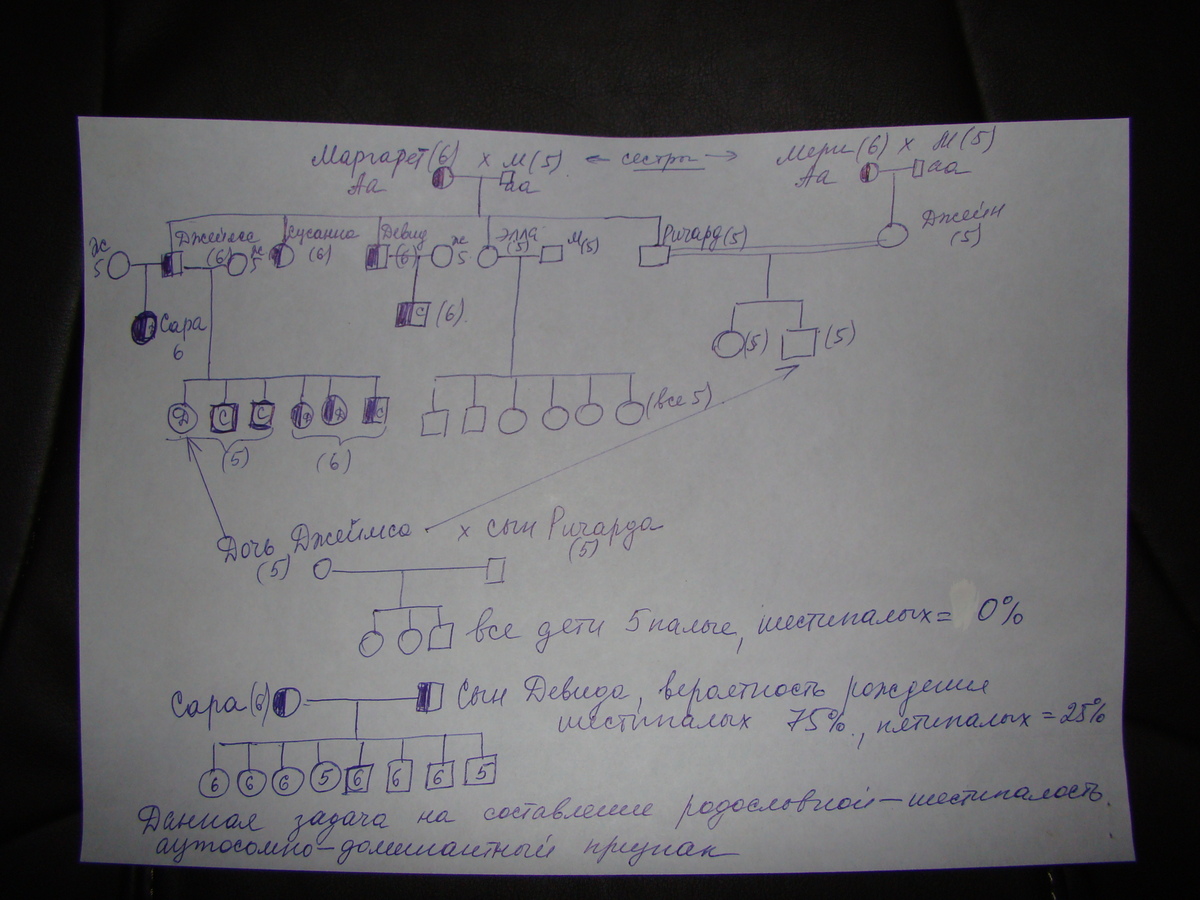 Маргарет (6) х М(5) ← сестры → Мери (6) х М(5)
Аа аа Аа аа
Ж 5 Джеймс (6) Ж 5 Сусанна (6) Девид (6) Ж 5 Элла (5) М(5) Ричард (5) Джейн (5)
Сара 6 С (6) (5) (5)
Д С С Д Д С (все 5)
(5) (6)
Дочь Джеймса х сын Ричарда
(5) (5)
все дети 5 палые, шестипалых = 0%
Сара (6) Сын Девида, вероятность рождения
шестипалых 75%, пятипалых = 25%
6 6 6 5 6 6 6 5
Данная задача на составление родословной – шестипалость
аутосомно-доминантный признак